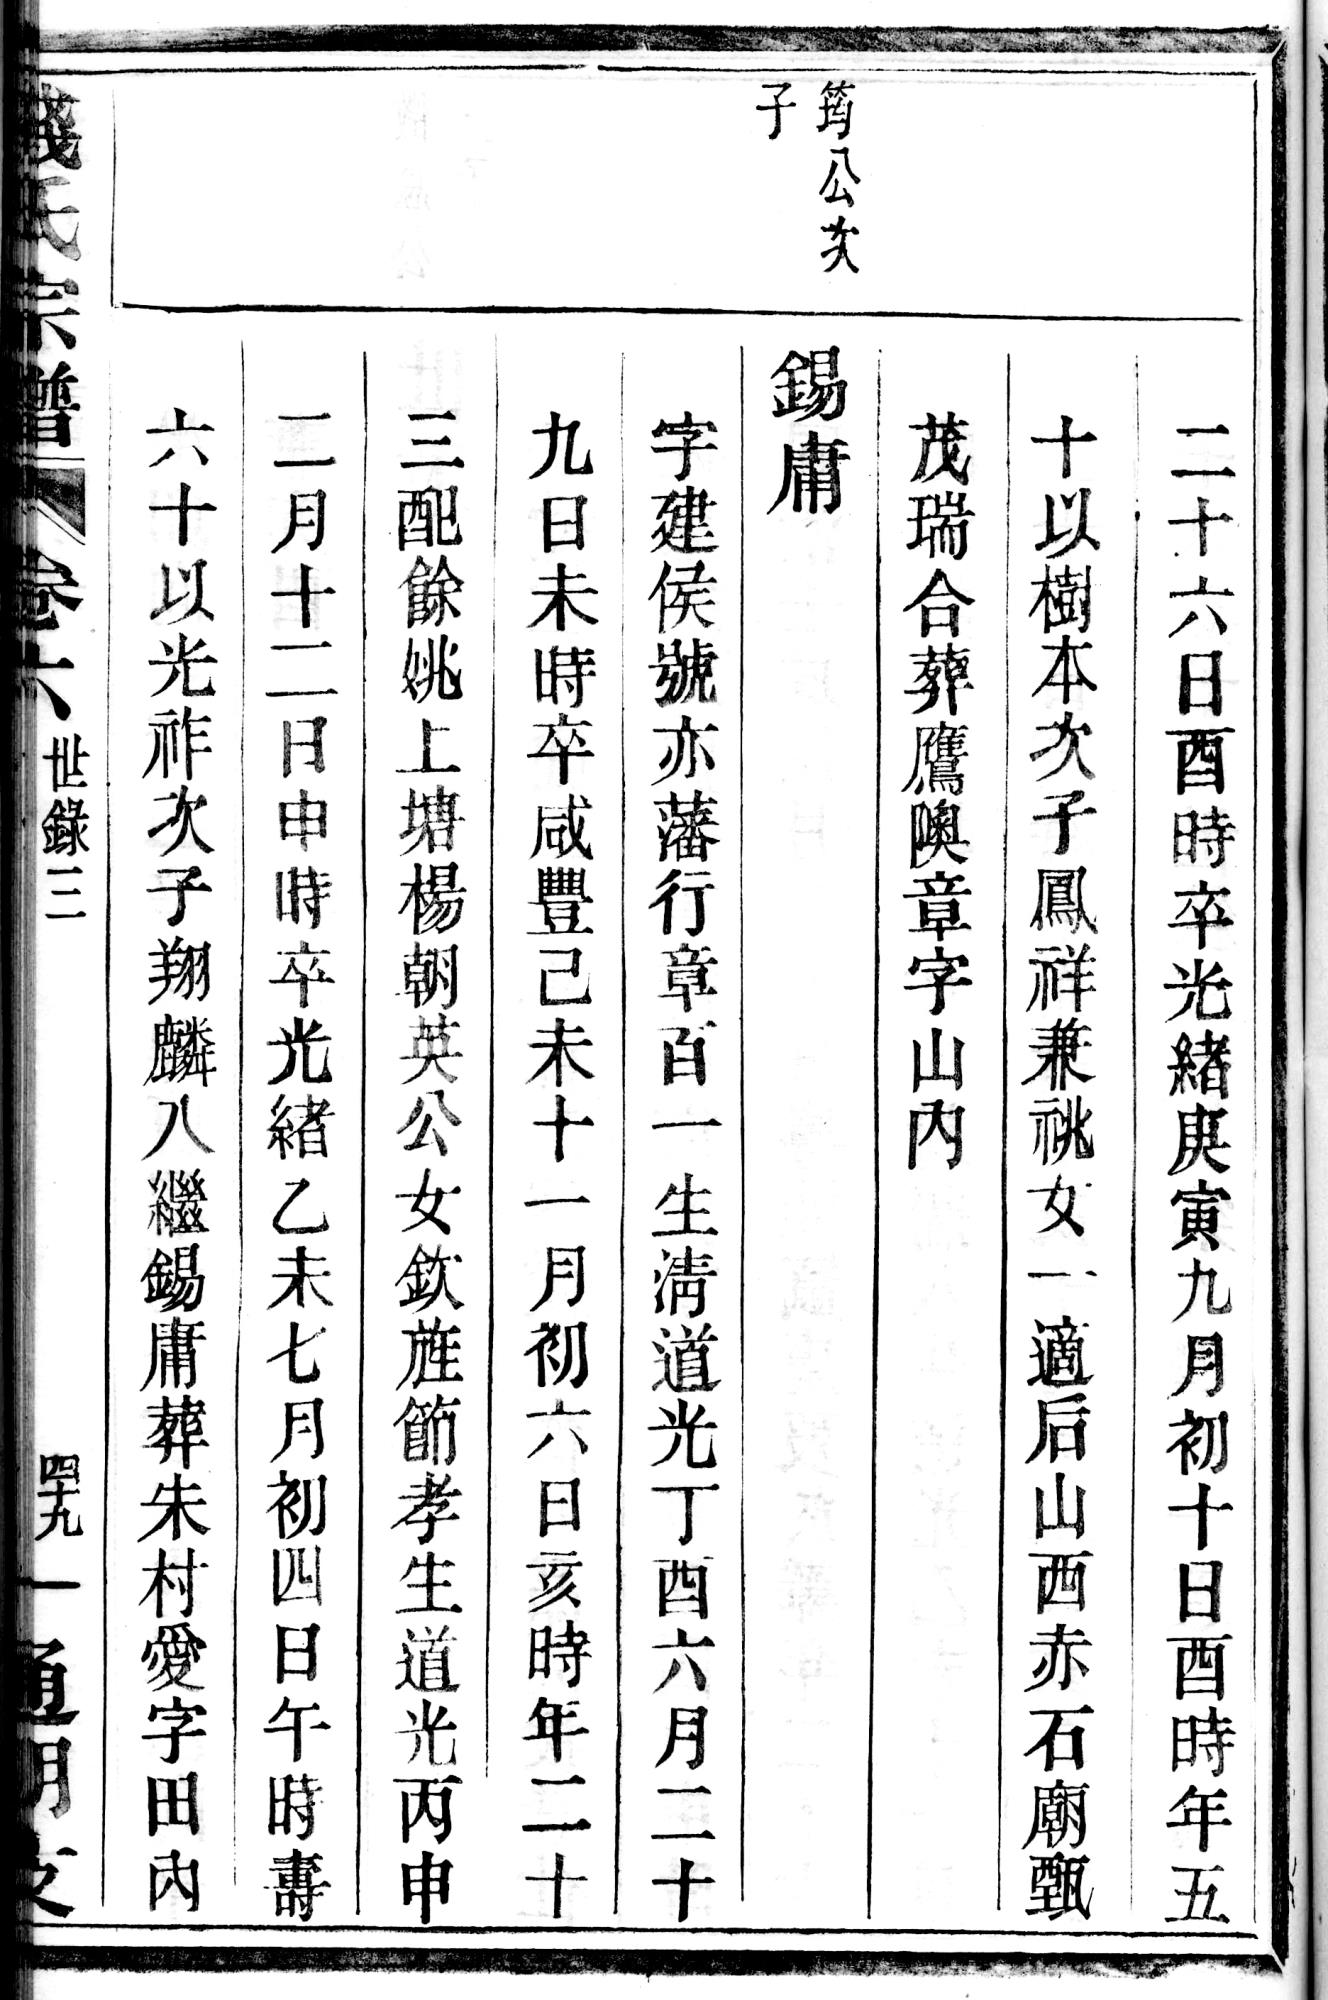 筠公次
子
二十六日酉時卒光緒庚寅九月初十日酉時年五
十以樹本次子鳳祥兼祧女一適后山西赤石廟甄
茂瑞合葬鷹噢章字山內
錫庸
字建侯號亦藩行章百一生清道光丁酉六月二十
九日未時卒咸豐己未十一月初六日亥時年二十
三配餘姚上塘楊朝英公女欽旌節孝生道光丙申
二月十二日申時卒光緒乙未七月初四日午時壽
六十以光祚次子翔麟入繼錫庸葬朱村愛字田內
錢氏宗譜 卷六 世錄三 四十九 一 通明支